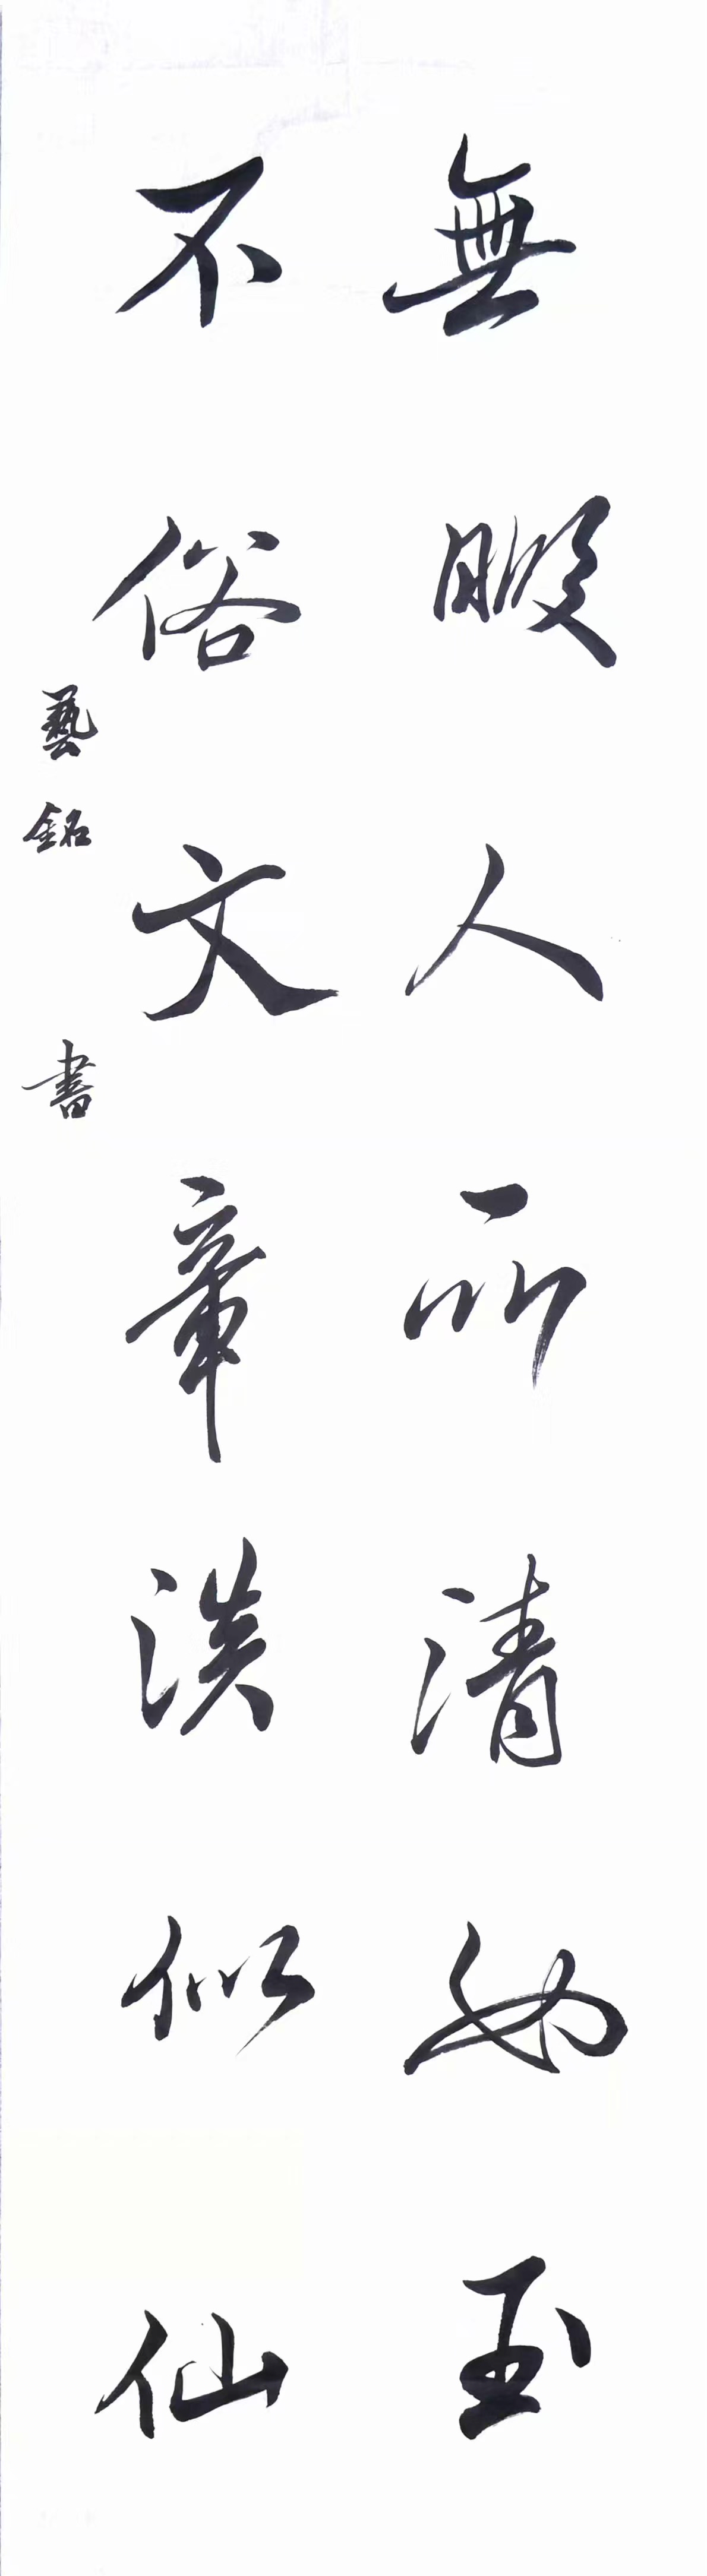 無暇人品清如玉
不俗文章淡似仙
藝銘書